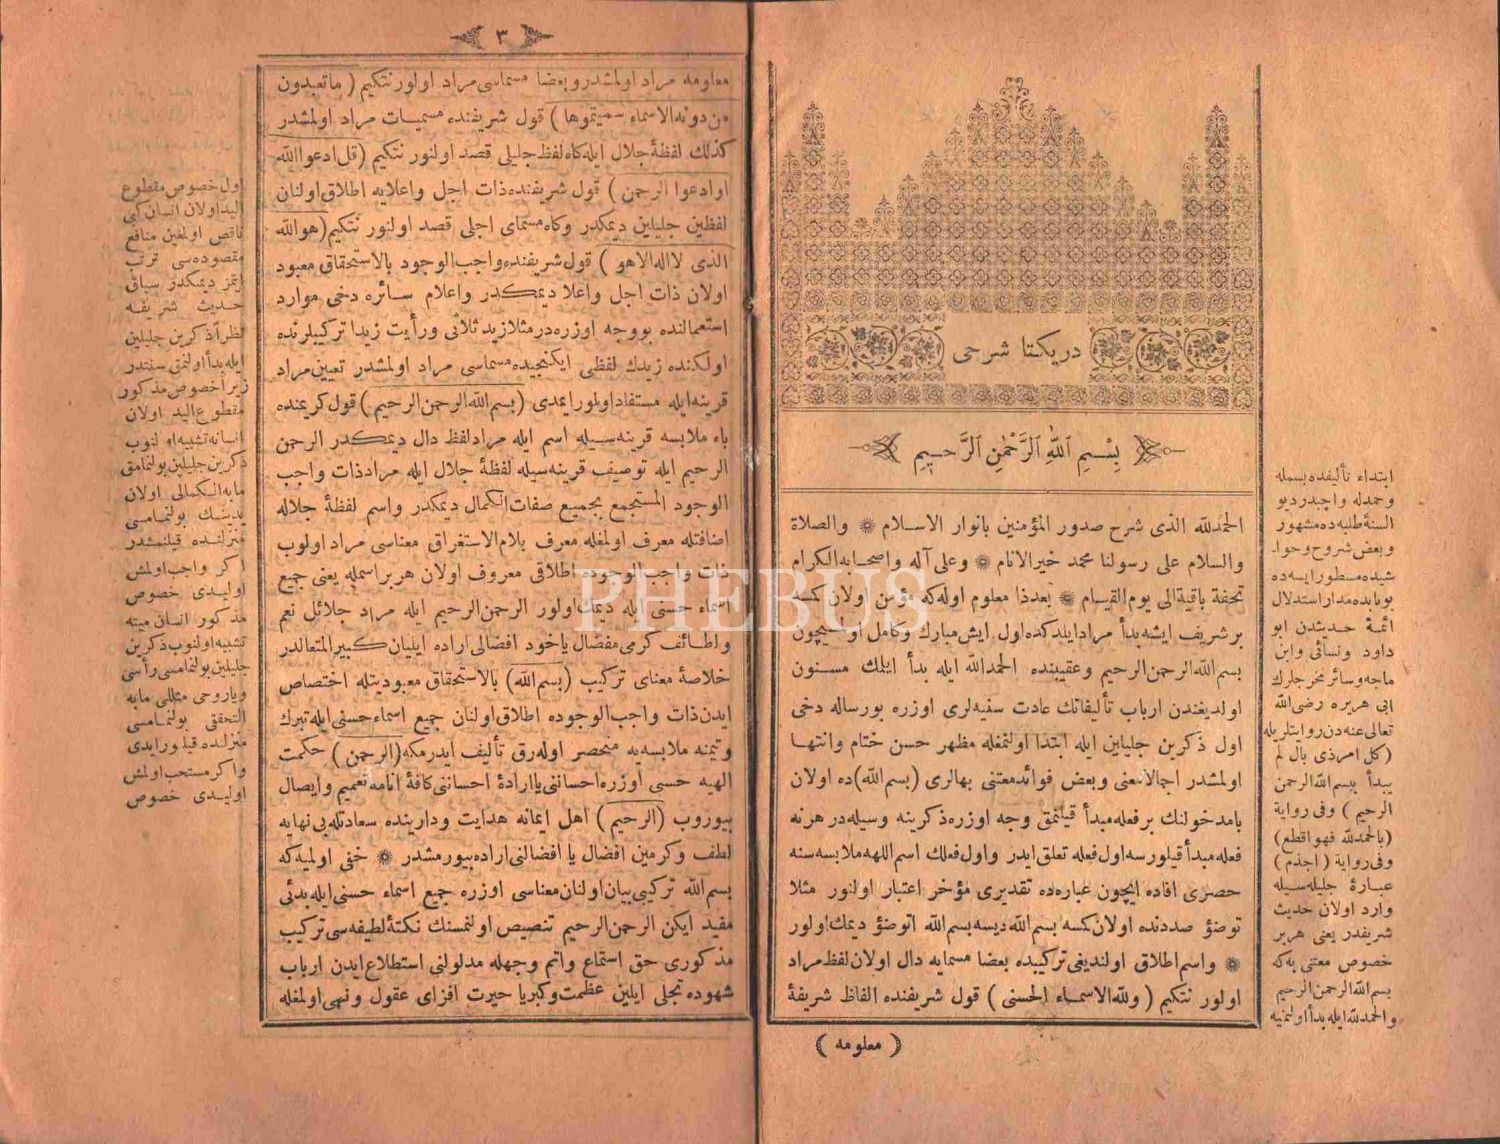 دريكتا شرحى
بِسْمِ ٱللّٰهِ ٱلرَّحْمٰنِ ٱلرَّحِيمِ
الحمدلله الذى شرح صدور المؤمنين بانوار الاسلام ۞ والصلاة
والسلام على رسولنا محمد خير الانام ۞ وعلى آله واصحابه الكرام
تحفة باقية الى يوم القيام ۞ بعدذا معلوم اوله كه مؤمن اولان كمسه
بر شريف ايشه بدأ مراد ايلدكده اول ايش مبارك وكامل اولمسيچون
بسم الله الرحمن الرحيم وعقيبنده الحمدلله ايله بدأ ايلك مسنون
اولديغندن ارباب تأليفاتك عادت سنيه لرى اوزره بو رساله دخى
اول ذكرين جليلين ايله ابتدا اولنمغله مظهر حسن ختام وانتها
اولمشدر اجمالا معنى وبعض فوائد معتنى بهالرى (بسم الله) ده اولان
بامدخولنك بر فعله مبدأ قيلنمق وجه اوزره ذكرينه وسيله در هر نه
فعله مبدأ قيلورسه اول فعله تعلق ايدر واول فعلك اسم اللهه ملابسه سنه
حصرى افاده ايچون عباره ده تقديرى مؤخر اعتبار اولنور مثلا
توضؤ صددنده اولان كمسه بسم الله ديسه بسم الله اتوضؤ ديمك اولور
۞ واسم اطلاق اولنديغى تركيبده بعضا مسمايه دال اولان لفظ مراد
اولور نتكيم (ولله الاسماء الحسنى) قول شريفنده الفاظ شريفۀ
(معلومه)
ابتداء تأليفده بسمله
وحمدله واجبدر ديو
السنۀ طلبه ده مشهور
وبعض شروح وحوا-
شيده مسطور ايسه ده
بو بابده مدار استدلال
ائمۀ حديثدن ابو
داود ونسائى وابن
ماجه وسائر مخرجلرك
ابى هريره رضى الله
تعالى عنه دن روايتلريله
(كل امر ذى بال لم
يبدأ ببسم الله الرحمن
الرحيم) وفى رواية
(بالحمدلله فهو اقطع)
وفى رواية (اجذم)
عبارۀ جليله سيله
وارد اولان حديث
شريفدر يعنى هر بر
خصوص معتنى به كه
بسم الله الرحمن الرحيم
والحمدلله ايله بدأ اولنميه
٣
معلومه مراد اولمشدر وبعضا مسماسى مراد اولور نتكيم (ما تعبدون
من دونه الا اسماء سميتموها) قول شريفنده مسميات مراد اولمشدر
كذلك لفظۀ جلال ايله كاه لفظ جليلى قصد اولنور نتكيم (قل ادعوا الله
او ادعوا الرحمن) قول شريفنده ذات اجل واعلايه اطلاق اولنان
لفظين جليلين ديمكدر وكاه مسماى اجلى قصد اولنور نتكيم (هو الله
الذى لا اله الا هو) قول شريفنده واجب الوجود بالاستحقاق معبود
اولان ذات اجل واعلا ديمكدر واعلام سائره دخى موارد
استعمالنده بو وجه اوزره در مثلا زيد ثلاثى ورأيت زيدا تركيبلرنده
اولكنده زيدك لفظى ايكنجيده مسماسى مراد اولمشدر تعيين مراد
قرينه ايله مستفاد اولور ايمدى (بسم الله الرحمن الرحيم) قول كريمنده
باء ملابسه قرينه سيله اسم ايله مراد لفظ دال ديمكدر الرحمن
الرحيم ايله توصيف قرينه سيله لفظۀ جلال ايله مراد ذات واجب
الوجود المستجمع بجميع صفات الكمال ديمكدر واسم لفظۀ جلاله
اضافتله معرف اولمغله معرف بلام الاستغراق معناسى مراد اولوب
ذات واجب الوجوده اطلاقى معروف اولان هر بر اسمله يعنى جميع
اسماء حسنى ايله ديمك اولور الرحمن الرحيم ايله مراد جلائل نعم
ولطائف كرمى مفضال ياخود افضالى اراده ايليان كبير المتعالدر
خلاصۀ معناى تركيب (بسم الله) بالاستحقاق معبوديتله اختصاص
ايدن ذات واجب الوجوده اطلاق اولنان جميع اسماء حسنى ايله تبرك
وتيمنه ملابسه يه منحصر اوله رق تأليف ايدرمكه (الرحمن) حكمت
الهيه حسبى اوزره احساننى يا ارادۀ احساننى كافۀ انامه تعميم وايصال
بيوروب (الرحيم) اهل ايمانه هدايت ودارينده سعادتله بى نهايه
لطف وكرمين افضال يا افضالنى اراده بيورمشدر ۞ خفى اولميه كه
بسم الله تركيبى بيان اولنان معناسى اوزره جميع اسماء حسنى ايله بدئى
مفيد ايكن الرحمن الرحيم تنصيص اولنمسنك نكتۀ لطيفه سى تركيب
مذكورى حق استماع واتم وجهله مدلولنى استطلاع ايدن ارباب
شهوده تجلى ايلين عظمت وكبريا حيرت افزاى عقول ونهى اولمغله
اول خصوص مقطوع
اليد اولان انسان كبى
ناقص اولمغين منافع
مقصوده سى ترتب
ايتمز ديمكدر سياق
حديث شريفه
نظرا ذكرين جليلين
ايله بدأ اولنمق سنتدر
زيرا خصوص مذكور
مقطوع اليد اولان
انسانه تشبيه اولنوب
ذكرين جليلين بولنمامق
مابه الكمالى اولان
يدينك بولنمامسى
منزلنده قيلنمشدر
اكر واجب اولمش
اوليدى خصوص
مذكور انسان ميته
تشبيه اولنوب ذكرين
جليلين بولنمامسى رأسى
ويا روحى مثللى مابه
التحققى بولنمامسى
منزلنده قيلنورايدى
واكر مستحب اولمش
اوليدى خصوص
PHEBUS